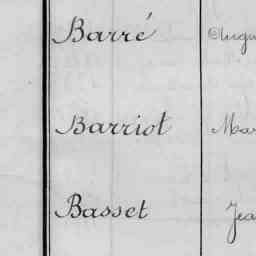 Barré Augu
Barriot Mar
Basset Jea